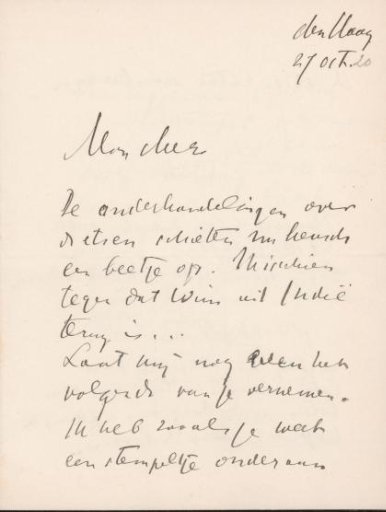 den Haag
27 oct. 20
Mon cher
De onderhandelingen over
dietsen schieten nu heusch
een beetje op. Misschien
tegen dat Wim uit Indië
terug is...
Laat mij nog even het
volgende van je vernemen.
Ik heb zooals je weet
een stempeltje onder aan